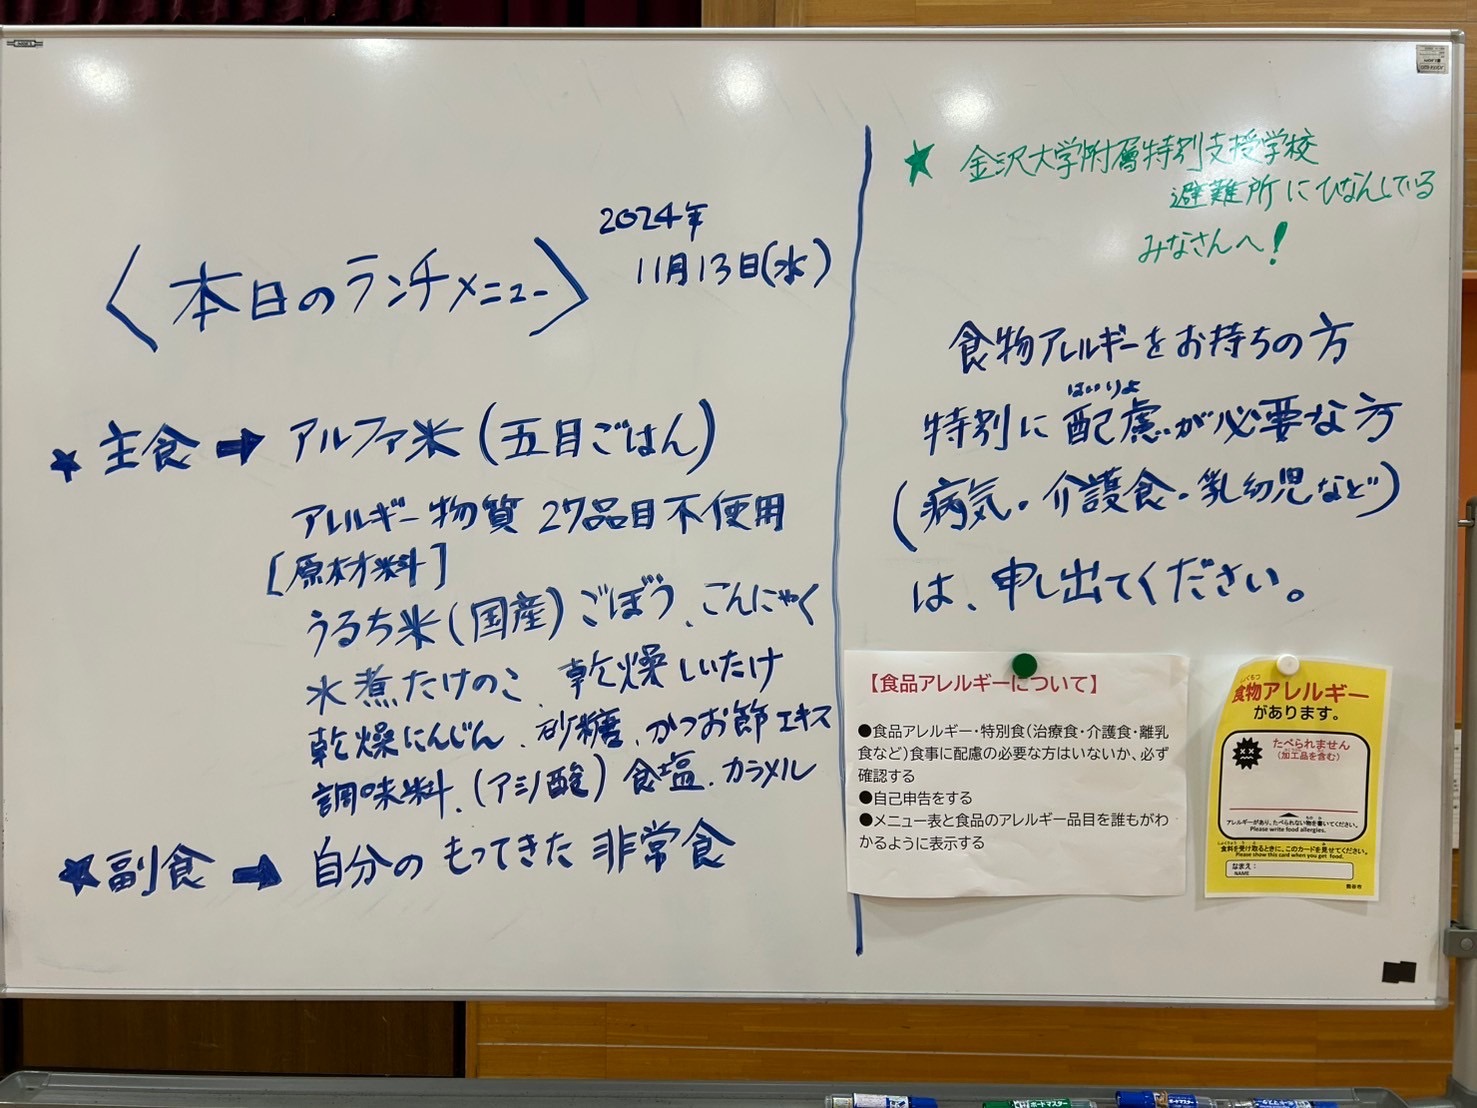 〈本日のランチメニュー〉
2024年
11月13日(水)
★主食➡アルファ米(五目ごはん)
アレルギー物質27品目不使用
[原材料]
うるち米(国産)ごぼう、こんにゃく
水煮たけのこ、乾燥しいたけ
乾燥にんじん、砂糖、かつお節エキス
調味料、(アミノ酸)食塩、カラメル
★副食➡自分のもってきた非常食
★金沢大学附属特別支援学校
避難所にひなんしている
みなさんへ!
食物アレルギーをお持ちの方
はいりょ
特別に配慮が必要な方
(病気・介護食・乳幼児など)
は、申し出てください。
【食品アレルギーについて】
●食品アレルギー・特別食(治療食・介護食・離乳
食など)食事に配慮の必要な方はいないか、必ず
確認する
●自己申告をする
●メニュー表と食品のアレルギー品目を誰もがわ
かるように表示する
しょくもつ
食物アレルギー
があります。
たべられません
(加工品を含む)
アレルギーがあり、たべられない物を書いてください。
Please write food allergies.
食料を受け取るときに、このカードを見せてください。
Please show this card when you get food.
なまえ:
NAME
熊谷市
ボードマスター